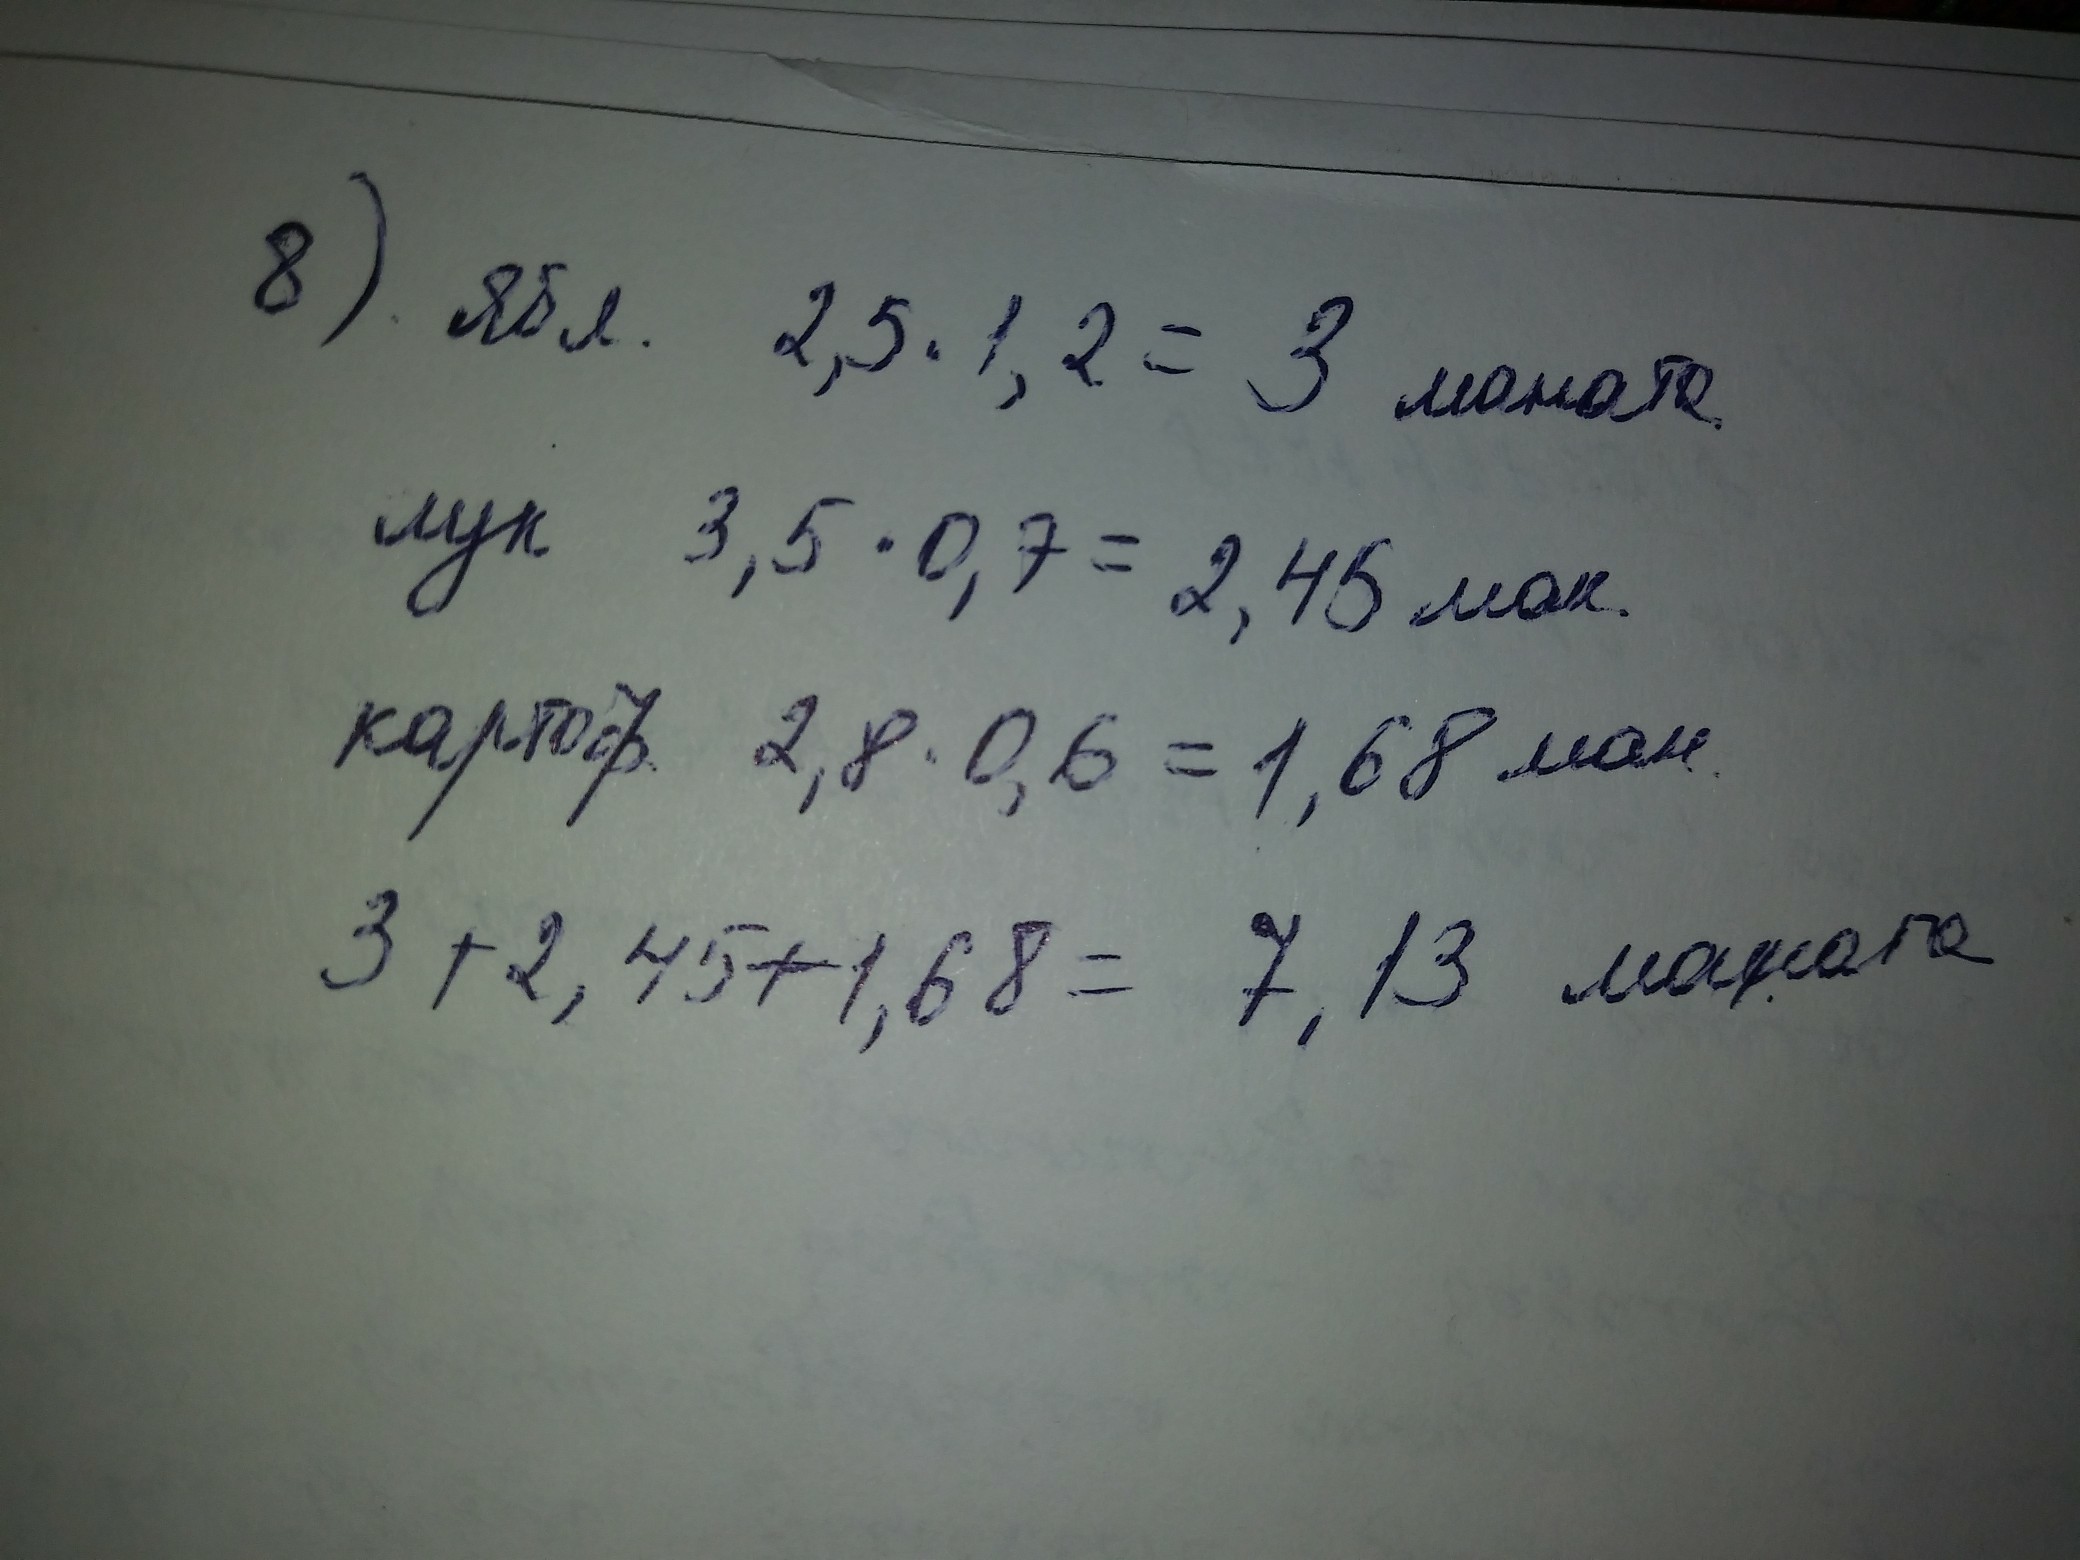 8) ябл. 2,5·1,2 = 3 маната.
лук 3,5·0,7 = 2,45 ман.
картоф. 2,8·0,6 = 1,68 ман.
3+2,45+1,68 = 7,13 маната